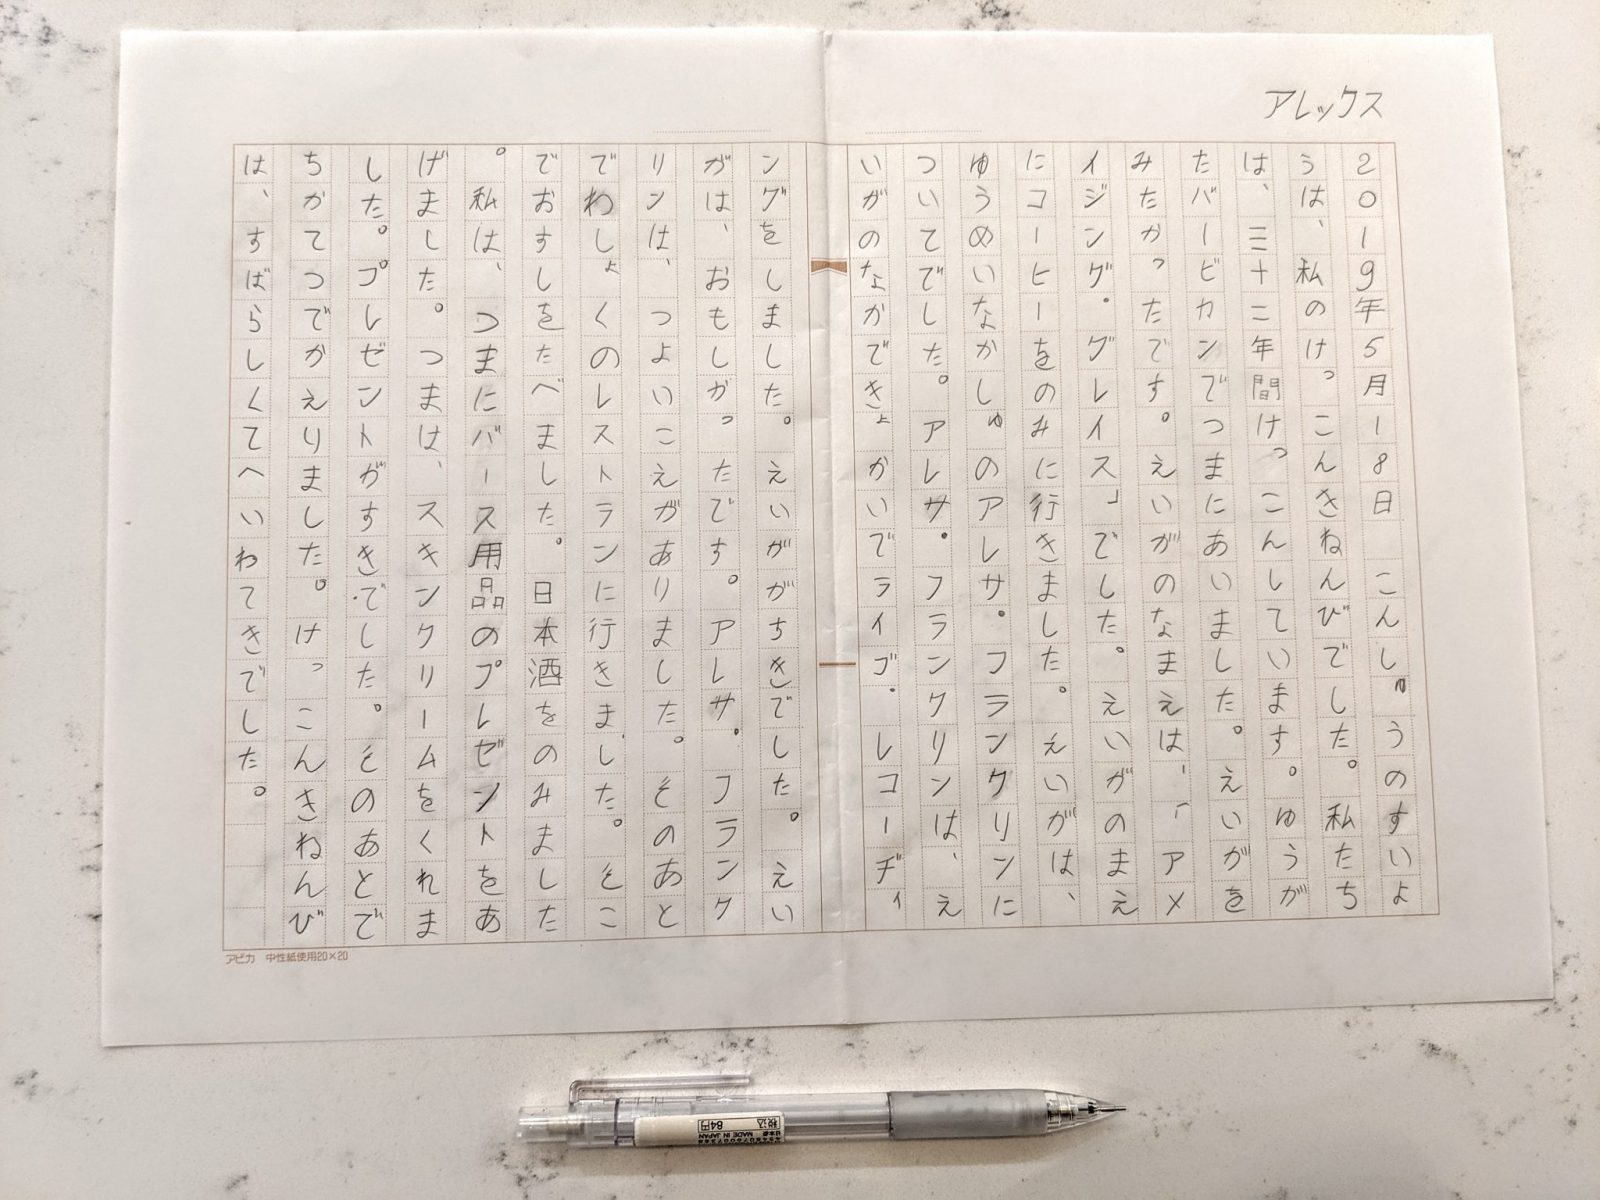 アレックス
2019年5月18日　こんしゅうのすいよ
うは、私のけっこんきねんびでした。私たち
は、三十二年間けっこんしています。ゆうが
たバービカンでつまにあいました。えいがを
みたかったです。えいがのなまえは、「アメ
イジング・グレイス」でした。えいがのまえ
にコーヒーをのみに行きました。えいがは、
ゆうめいなかしゅのアレサ・フランクリンに
ついてでした。アレサ・フランクリンは、え
いがのなかできょかいでライブ・レコーディ
ングをしました。えいががちきでした。えい
がは、おもしかったです。アレサ・フランク
リンは、つよいこえがありました。そのあと
でわしょくのレストランに行きました。そこ
でおすしをたべました。日本酒をのみました
。私は、つまにバース用品のプレゼントをあ
げました。つまは、スキンクリームをくれま
した。プレゼントがすきでした。そのあとで
ちかてつでかえりました。けっこんきねんび
は、すばらしくてへいわてきでした。
アピカ　中性紙使用20×20
税込
84円
日本製 MADE IN JAPAN